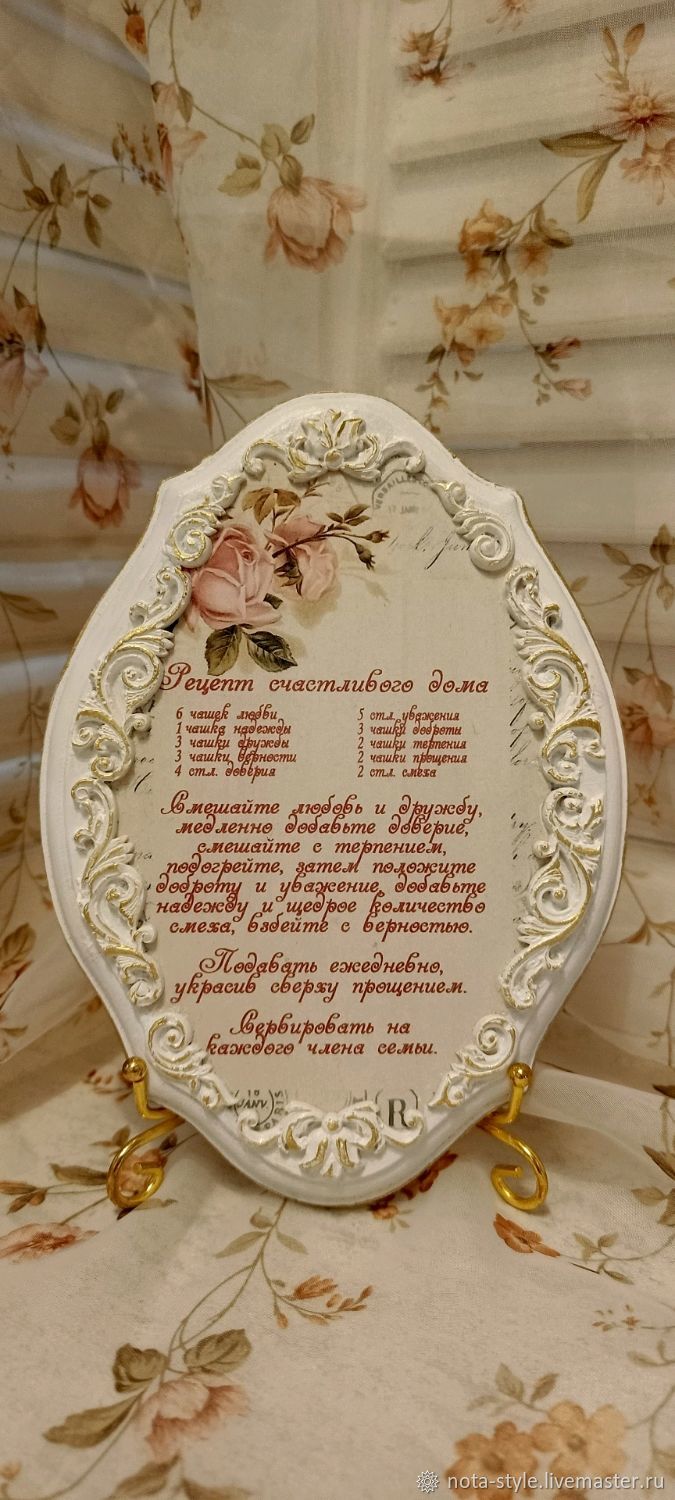 VERSAILLES
17 JANV
Рецепт счастливого дома
6 чашек любви
1 чашка надежды
3 чашки дружбы
3 чашки верности
4 стл. доверия
5 стл. уважения
3 чашки доброты
2 чашки терпения
2 чашки прощения
2 стл. смеха
Смешайте любовь и дружбу,
медленно добавьте доверие,
смешайте с терпением,
подогрейте, затем положите
доброту и уважение, добавьте
надежду и щедрое количество
смеха, взбейте с верностью.
Подавать ежедневно,
украсив сверху прощением.
Сервировать на
каждого члена семьи.
JANV.
R
nota-style.livemaster.ru